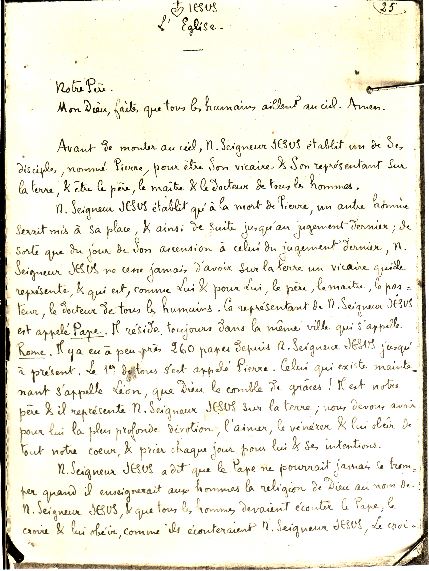 JESUS
25
L'Eglise.
Notre Père.
Mon Dieu, faites que tous les humains aillent au ciel. Amen.
Avant de monter au ciel, N. Seigneur JESUS établit un de Ses
disciples, nommé Pierre, pour être Son vicaire & Son représentant sur
la terre, & être le père, le maître & le docteur de tous les hommes.
N. Seigneur JESUS établit qu'à la mort de Pierre, un autre homme
serait mis à sa place, & ainsi de suite jusqu'au jugement dernier; de
sorte que du jour de Son ascension à celui du jugement dernier, N.
Seigneur JESUS ne cesse jamais d'avoir sur la terre un vicaire qui le
représente, & qui est, comme Lui & pour Lui, le père, le maître, le pas-
teur, le docteur de tous les humains. Ce représentant de N. Seigneur JESUS
est appelé Pape. Il réside toujours dans la même ville qui s'appelle
Rome. Il y a eu à peu près 260 papes depuis N. Seigneur JESUS jusqu'
à présent. Le 1er de tous s'est appelé Pierre. Celui qui existe mainte-
nant s'appelle Léon, que Dieu le comble de grâces! Il est notre
père & il représente N. Seigneur JESUS sur la terre; nous devons avoir
pour lui la plus profonde dévotion, l'aimer, le vénérer & lui obéir de
tout notre coeur, & prier chaque jour pour lui & ses intentions.
N. Seigneur JESUS a dit que le Pape ne pourrait jamais se trom-
per quand il enseignerait aux hommes la religion de Dieu au nom de
N. Seigneur JESUS, & que tous les hommes devaient écouter le Pape, le
croire & lui obéir, comme ils écouteraient N. Seigneur JESUS, Le croi-